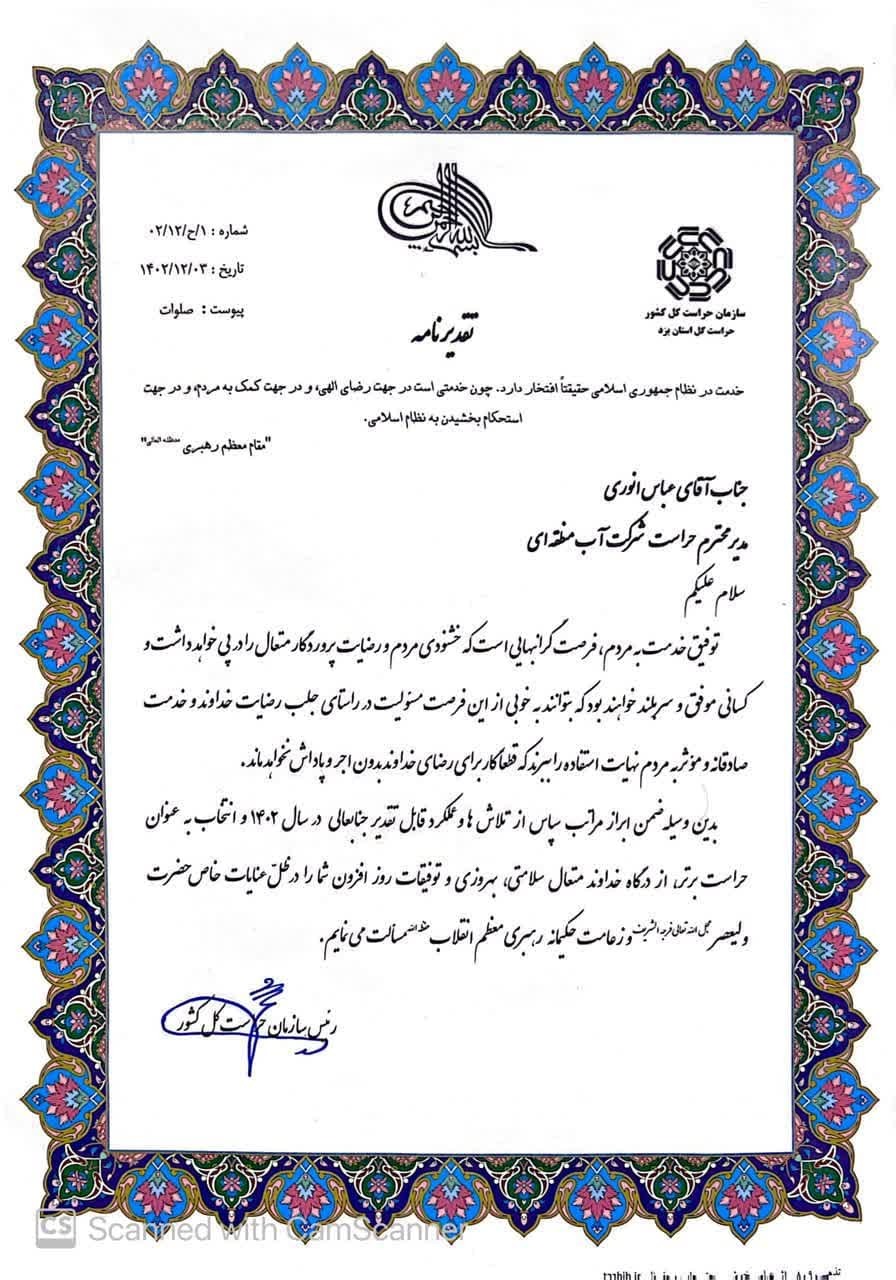 بسم الله الرحمن الرحیم
شماره : ۱/ح/۰۲/۱۲
تاریخ : ۱۴۰۲/۱۲/۰۳
پیوست : صلوات
سازمان حراست کل کشور
حراست کل استان یزد
تقدیرنامه
خدمت در نظام جمهوری اسلامی حقیقتاً افتخار دارد. چون خدمتی است در جهت رضای الهی، و در جهت کمک به مردم، و در جهت
استحکام بخشیدن به نظام اسلامی.
"مقام معظم رهبری مدظله العالی"
جناب آقای عباس انوری
مدیر محترم حراست شرکت آب منطقه ای
سلام علیکم
توفیق خدمت به مردم، فرصت گرانبهایی است که خشنودی مردم و رضایت پروردگار متعال را در پی خواهد داشت و
کسانی موفق و سربلند خواهند بود که بتوانند به خوبی از این فرصت مسئولیت در راستای جلب رضایت خداوند و خدمت
صادقانه و مؤثر به مردم نهایت استفاده را ببرند که قطعا کار برای رضای خداوند بدون اجر و پاداش نخواهد ماند.
بدین وسیله ضمن ابراز مراتب سپاس از تلاش ها و عملکرد قابل تقدیر جنابعالی در سال ۱۴۰۲ و انتخاب به عنوان
حراست برتر، از درگاه خداوند متعال سلامتی، بهروزی و توفیقات روز افزون شما را در ظلّ عنایات خاص حضرت
ولیعصر عجل الله تعالی فرجه الشریف و زعامت حکیمانه رهبری معظم انقلاب مدظله مسألت می نمایم.
رئیس سازمان حراست کل کشور
CS Scanned with CamScanner